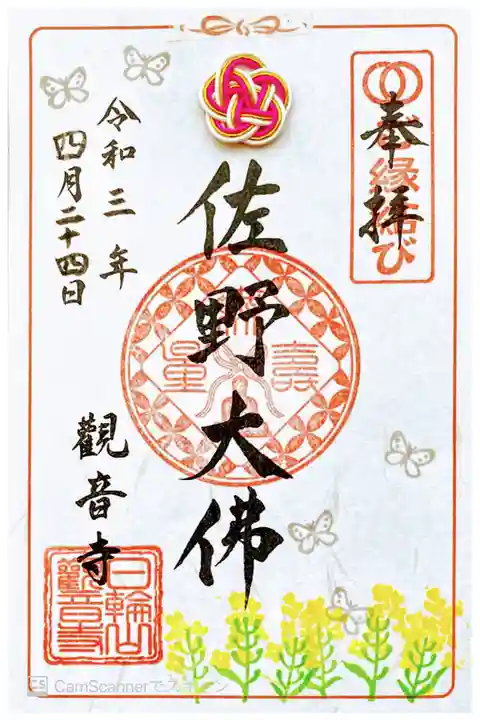 奉拝
縁結び
佐野大佛
無量壽
令和三年
四月二十四日
觀音寺
日輪山
觀音寺
CS CamScannerでスキャン